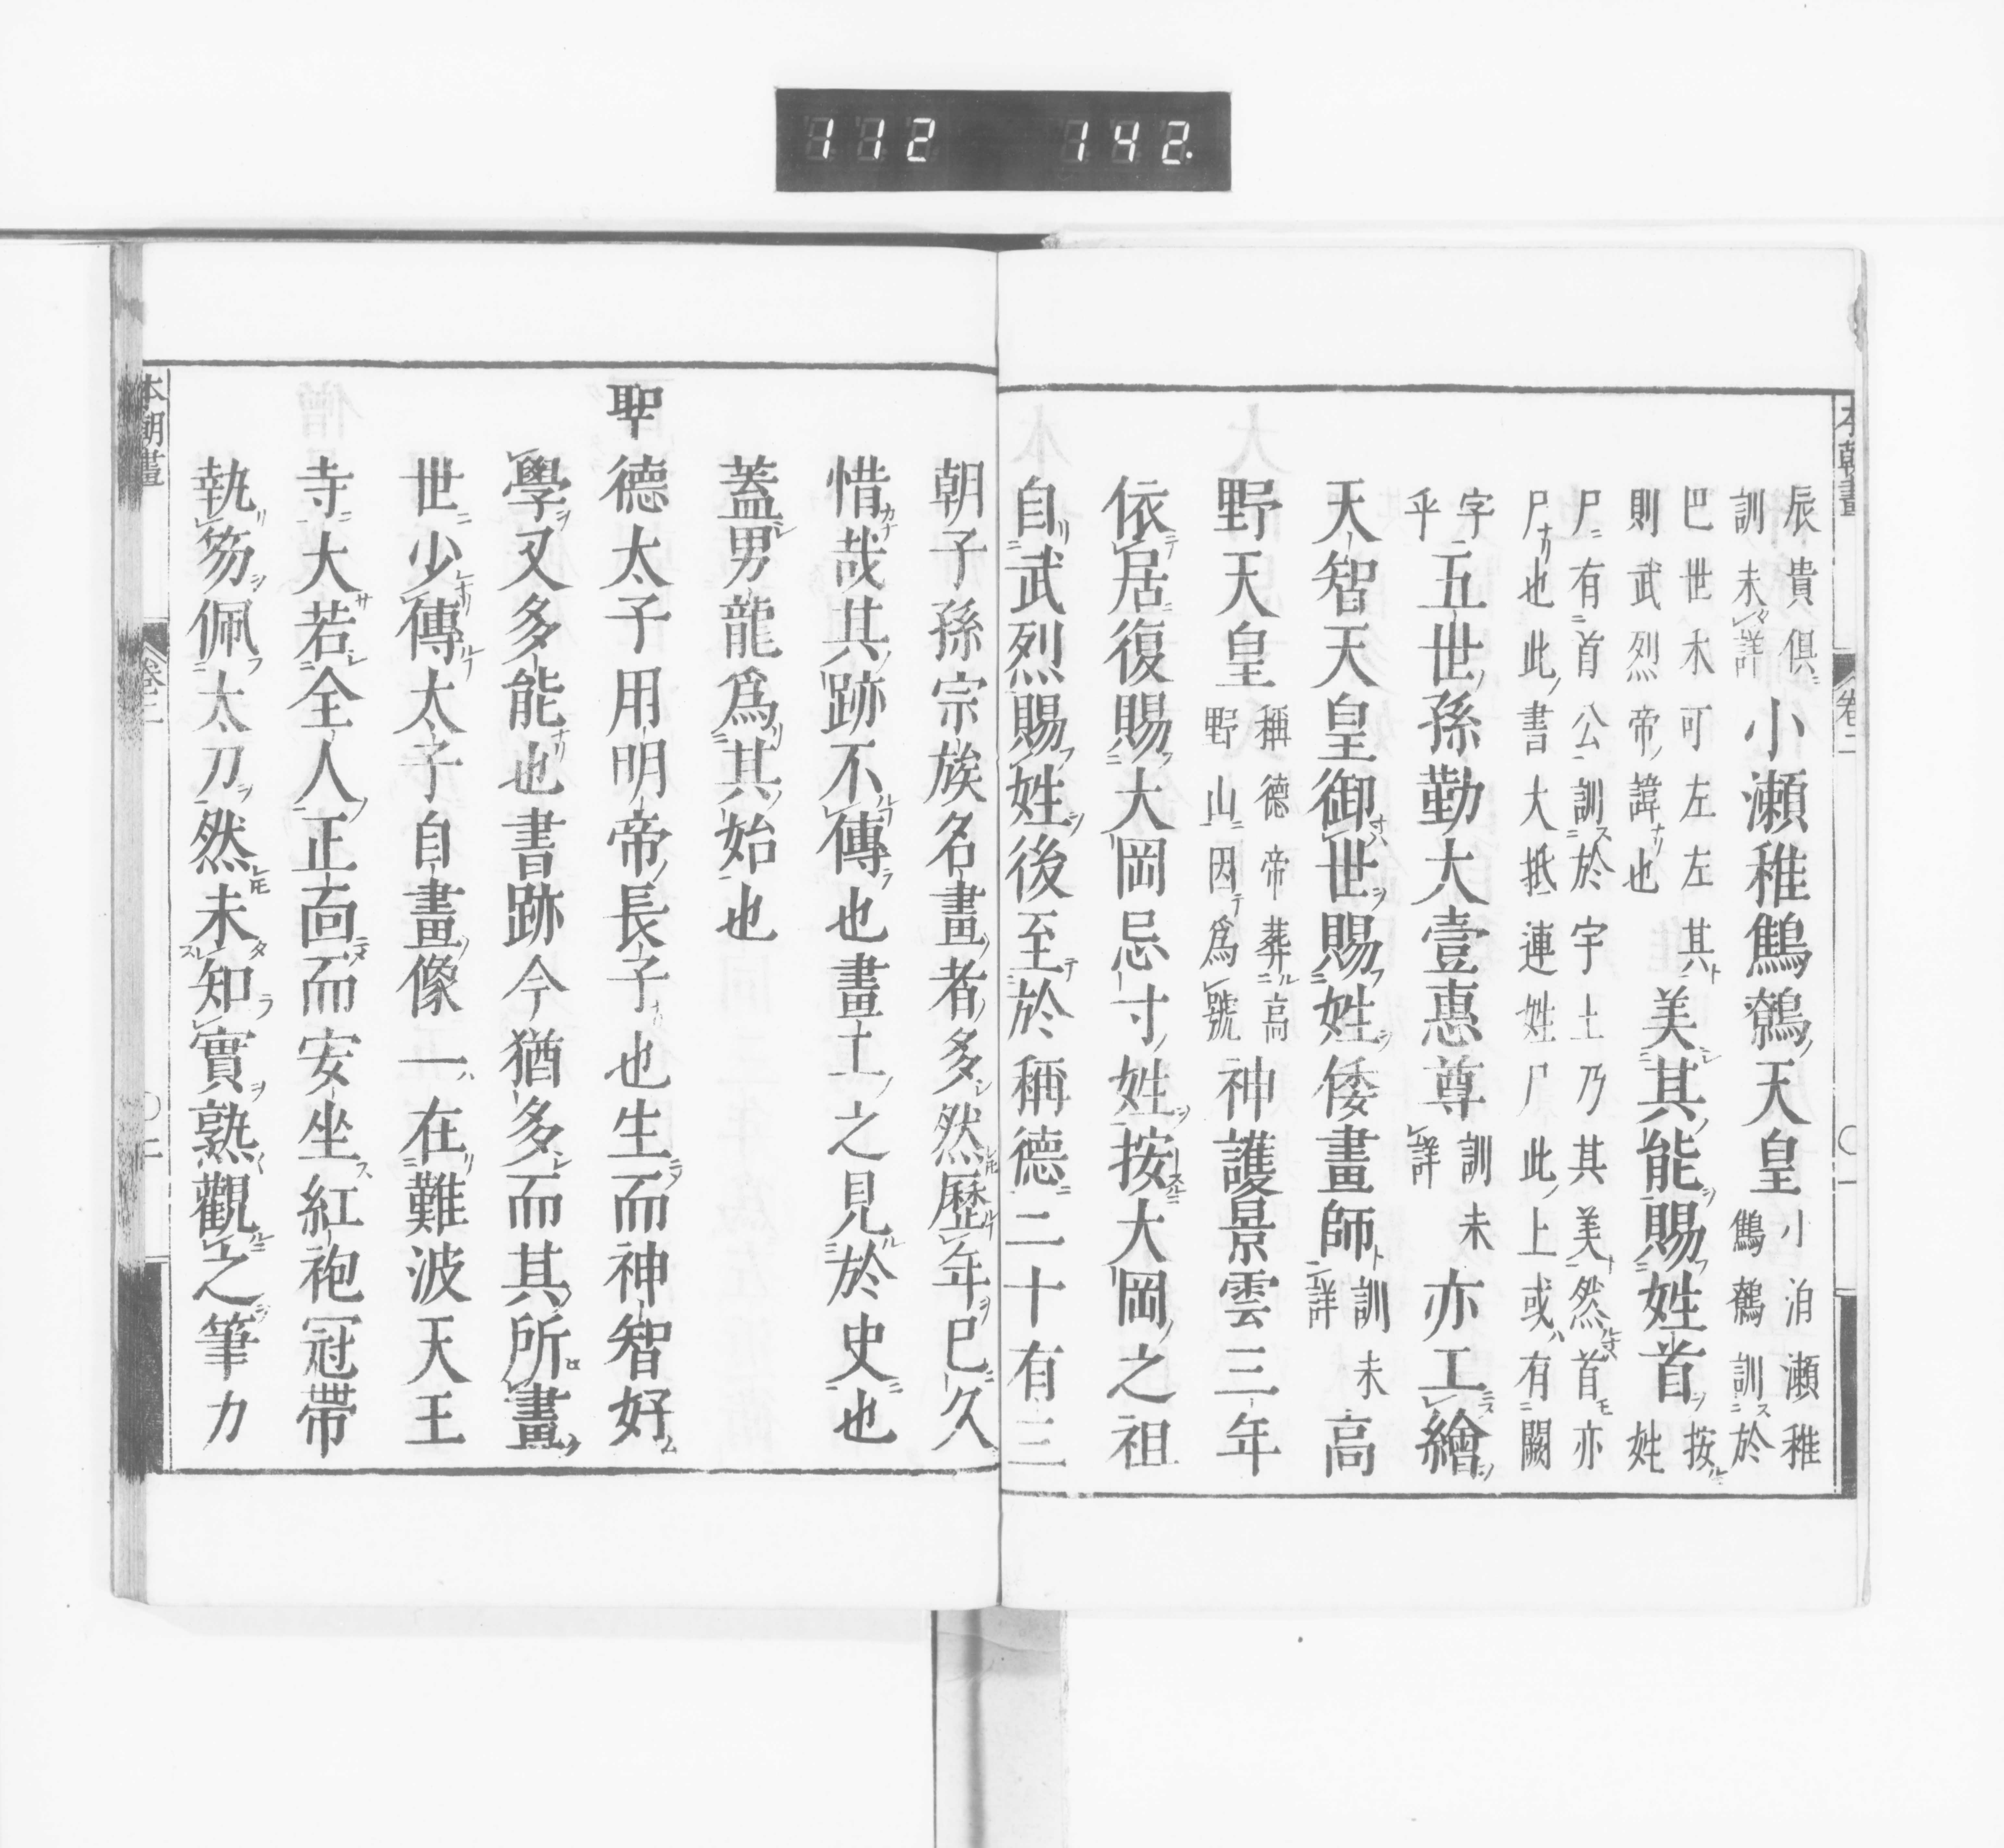 112 142.
本朝畫
卷二
〇一
辰貴俱
訓未詳
小瀬稚鷦鷯天皇
小泊瀬稚
鷦鷯訓於
巴世木可左左其
則武烈帝諱也
美其能賜姓首
按
姓
尸有首公訓於宇土乃其美然首亦
尸也此書大抵連姓尸此上或有闕
字
乎
五世孫勤大壹惠尊
訓未
詳
亦工繪
天智天皇御世賜姓倭畫師
訓未
詳
高
野天皇
稱德帝葬高
野山因爲號
神護景雲三年
依居復賜大岡忌寸姓按大岡之祖
自武烈賜姓後至於稱德二十有三
朝子孫宗族名畫者多然歷年已久
惜哉其跡不傳也畫士之見於史也
蓋男龍爲其始也
聖德太子用明帝長子也生而神智好
學又多能也書跡今猶多而其所畫
世少傳太子自畫像一在難波天王
寺大若全人正面而安坐紅袍冠帶
執笏佩太刀然未知實熟觀之筆力
本朝畫
卷二
〇二